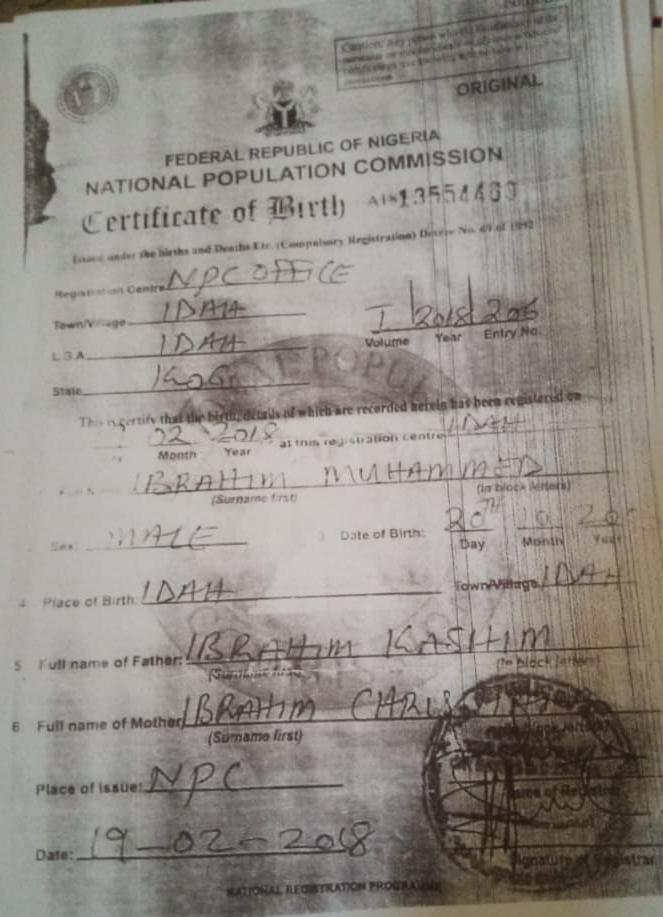 ORIGINAL
FEDERAL REPUBLIC OF NIGERIA
NATIONAL POPULATION COMMISSION
Certificate of Birth
Issued under the births and Deaths Etc. (Compulsory Registration) Decree No. 69 of 1992
Registration Centre NPC OFFICE
Town/Village IDAH
L.G.A. IDAH
I 2018 206
Volume Year Entry No.
State KOGI
This is certify that the birth, details of which are recorded herein has been registered on
02 2018 at this registration centre IDAH
Month Year
IBRAHIM MUHAMMED
(Surname first) (in block letters)
Sex: MALE 3 Date of Birth: 20TH 10
Day Month Year
4 Place of Birth: IDAH Town/Village IDAH
5 Full name of Father: IBRAHIM KASHIM
(Surname first) (In block letters)
6 Full name of Mother IBRAHIM
(Surname first)
Place of Issue: NPC
Name of Registrar
Date: 19-02-2018
Signature of Registrar
NATIONAL REGISTRATION PROGRAMME